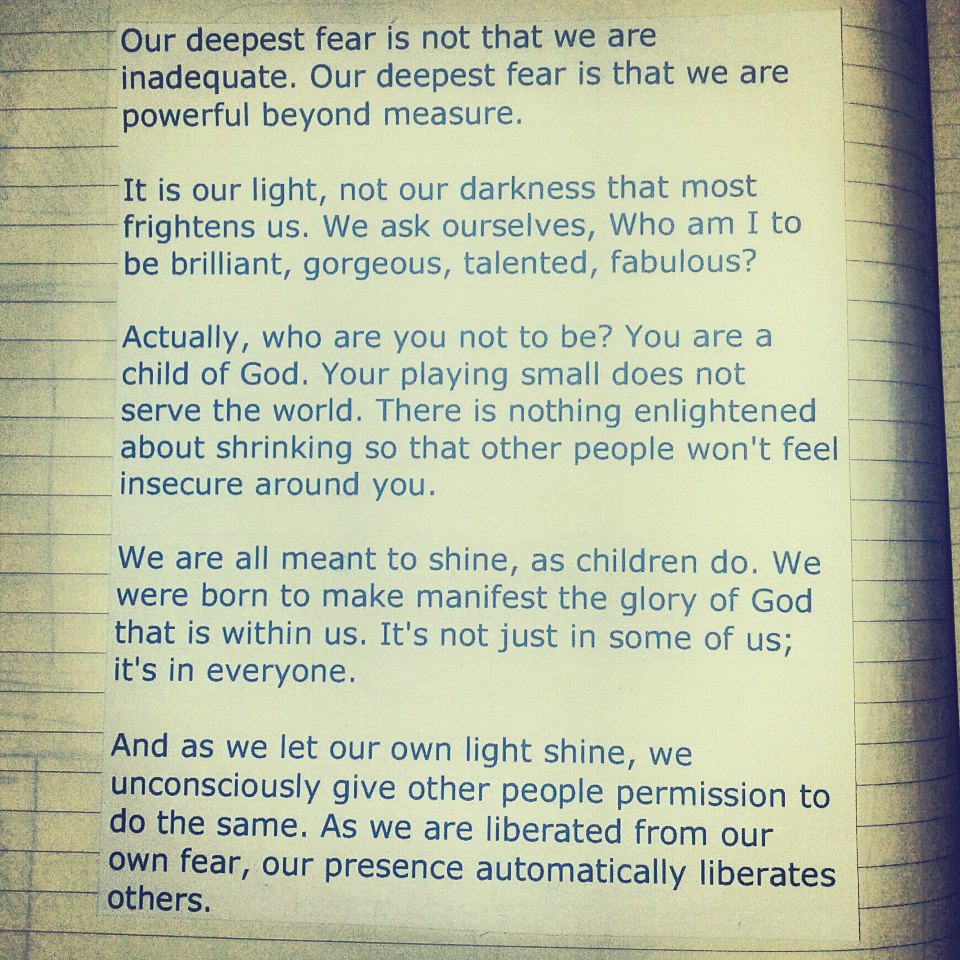 Our deepest fear is not that we are
inadequate. Our deepest fear is that we are
powerful beyond measure.
It is our light, not our darkness that most
frightens us. We ask ourselves, Who am I to
be brilliant, gorgeous, talented, fabulous?
Actually, who are you not to be? You are a
child of God. Your playing small does not
serve the world. There is nothing enlightened
about shrinking so that other people won't feel
insecure around you.
We are all meant to shine, as children do. We
were born to make manifest the glory of God
that is within us. It's not just in some of us;
it's in everyone.
And as we let our own light shine, we
unconsciously give other people permission to
do the same. As we are liberated from our
own fear, our presence automatically liberates
others.